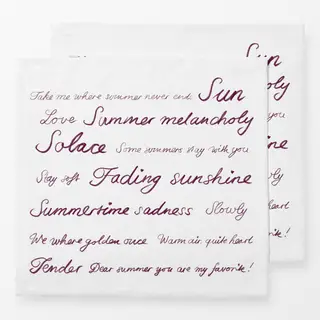 Take me where summer never end. Sun
Love Summer melancholy
Solace Some summers stay with you
Stay soft Fading sunshine
Summertime sadness Slowly
We where golden once Warm air, quite heart
Tender Dear summer you are my favorite!
Sun
melancholy
with you
sunshine
Slowly
heart
favorite!